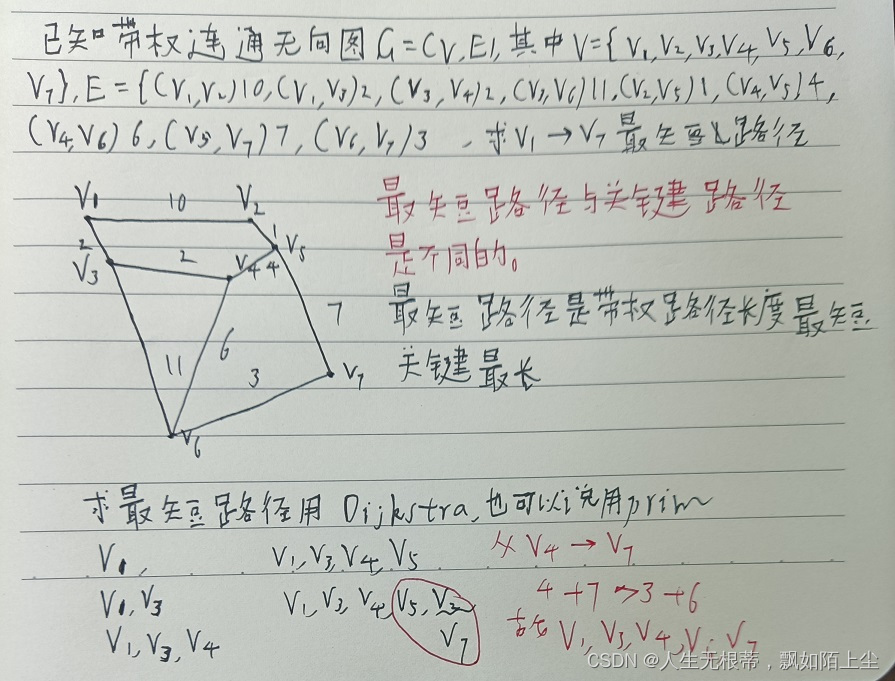 已知带权连通无向图G=(V,E),其中V={V1,V2,V3,V4,V5,V6,
V7},E={(V1,V2)10,(V1,V3)2,(V3,V4)2,(V3,V6)11,(V2,V5)1,(V4,V5)4,
(V4,V6)6,(V5,V7)7,(V6,V7)3 ,求V1→V7最短路径
V1 10 V2
2 1 V5
V3 2 V4 4
7
11 6 3 V7
V6
最短路径与关键路径
是不同的。
最短路径是带权路径长度最短
关键最长
求最短路径用Dijkstra,也可以说用prim
V1,
V1,V3
V1,V3,V4
V1,V3,V4,V5
V1,V3,V4,V5,V2
V7
从V4→V7
4+7>3+6
故 V1,V3,V4,V6 V7
CSDN @人生无根蒂，飘如陌上尘